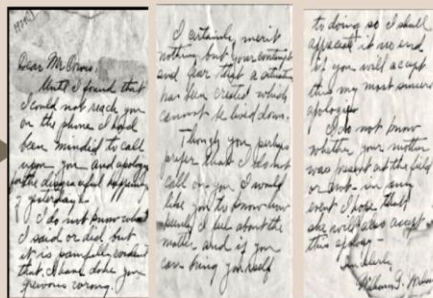 Dear Mr.
Until I found that
I could not reach you
on the phone I had
been minded to call
upon you and apologize
for the disgraceful happening
of yesterday.
I do not know what
I said or did but
it is painfully evident
that I have done you
grievous wrong.
I certainly merit
nothing but your contempt
and fear that a situation
has been created which
cannot be lived down.
Though you perhaps
prefer that I do not
call on you I would
like you to know how
I feel about the
matter and if you
can bring yourself
to doing so I shall
appreciate it no end
if you will accept
this my most sincere
apologies
I do not know
whether your mother
was present at the field
or not - in any
event I hope that
she will also accept
this apology -
Sincerely,
William G.